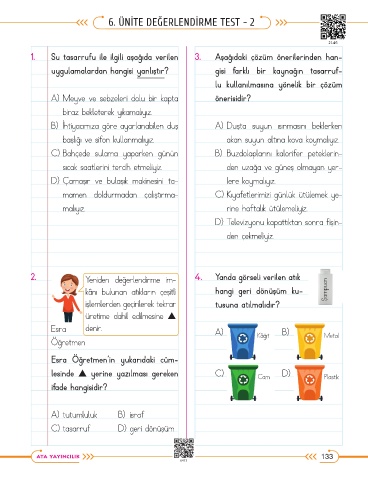 6. ÜNİTE DEĞERLENDİRME TEST - 2
1. Su tasarrufu ile ilgili aşağıda verilen
uygulamalardan hangisi yanlıştır?
A) Meyve ve sebzeleri dolu bir kapta
biraz bekleterek yıkamalıyız.
B) İhtiyacımıza göre ayarlanabilen duş
başlığı ve sifon kullanmalıyız.
C) Bahçede sulama yaparken günün
sıcak saatlerini tercih etmeliyiz.
D) Çamaşır ve bulaşık makinesini ta-
mamen doldurmadan çalıştırma-
malıyız.
2.
Yeniden değerlendirme im-
kânı bulunan atıkların çeşitli
işlemlerden geçirilerek tekrar
üretime dahil edilmesine ▲
denir.
Esra
Öğretmen
Esra Öğretmen'in yukarıdaki cüm-
lesinde ▲ yerine yazılması gereken
ifade hangisidir?
A) tutumluluk B) israf
C) tasarruf D) geri dönüşüm
3. Aşağıdaki çözüm önerilerinden han-
gisi farklı bir kaynağın tasarruf-
lu kullanılmasına yönelik bir çözüm
önerisidir?
A) Duşta suyun ısınmasını beklerken
akan suyun altına kova koymalıyız.
B) Buzdolaplarını kalorifer peteklerin-
den uzağa ve güneş olmayan yer-
lere koymalıyız.
C) Kıyafetlerimizi günlük ütülemek ye-
rine haftalık ütülemeliyiz.
D) Televizyonu kapattıktan sonra fişin-
den çekmeliyiz.
4. Yanda görseli verilen atık
hangi geri dönüşüm ku-
tusuna atılmalıdır?
Şampuan
A) Kâğıt B) Metal
C) Cam D) Plastik
ATA YAYINCILIK
133